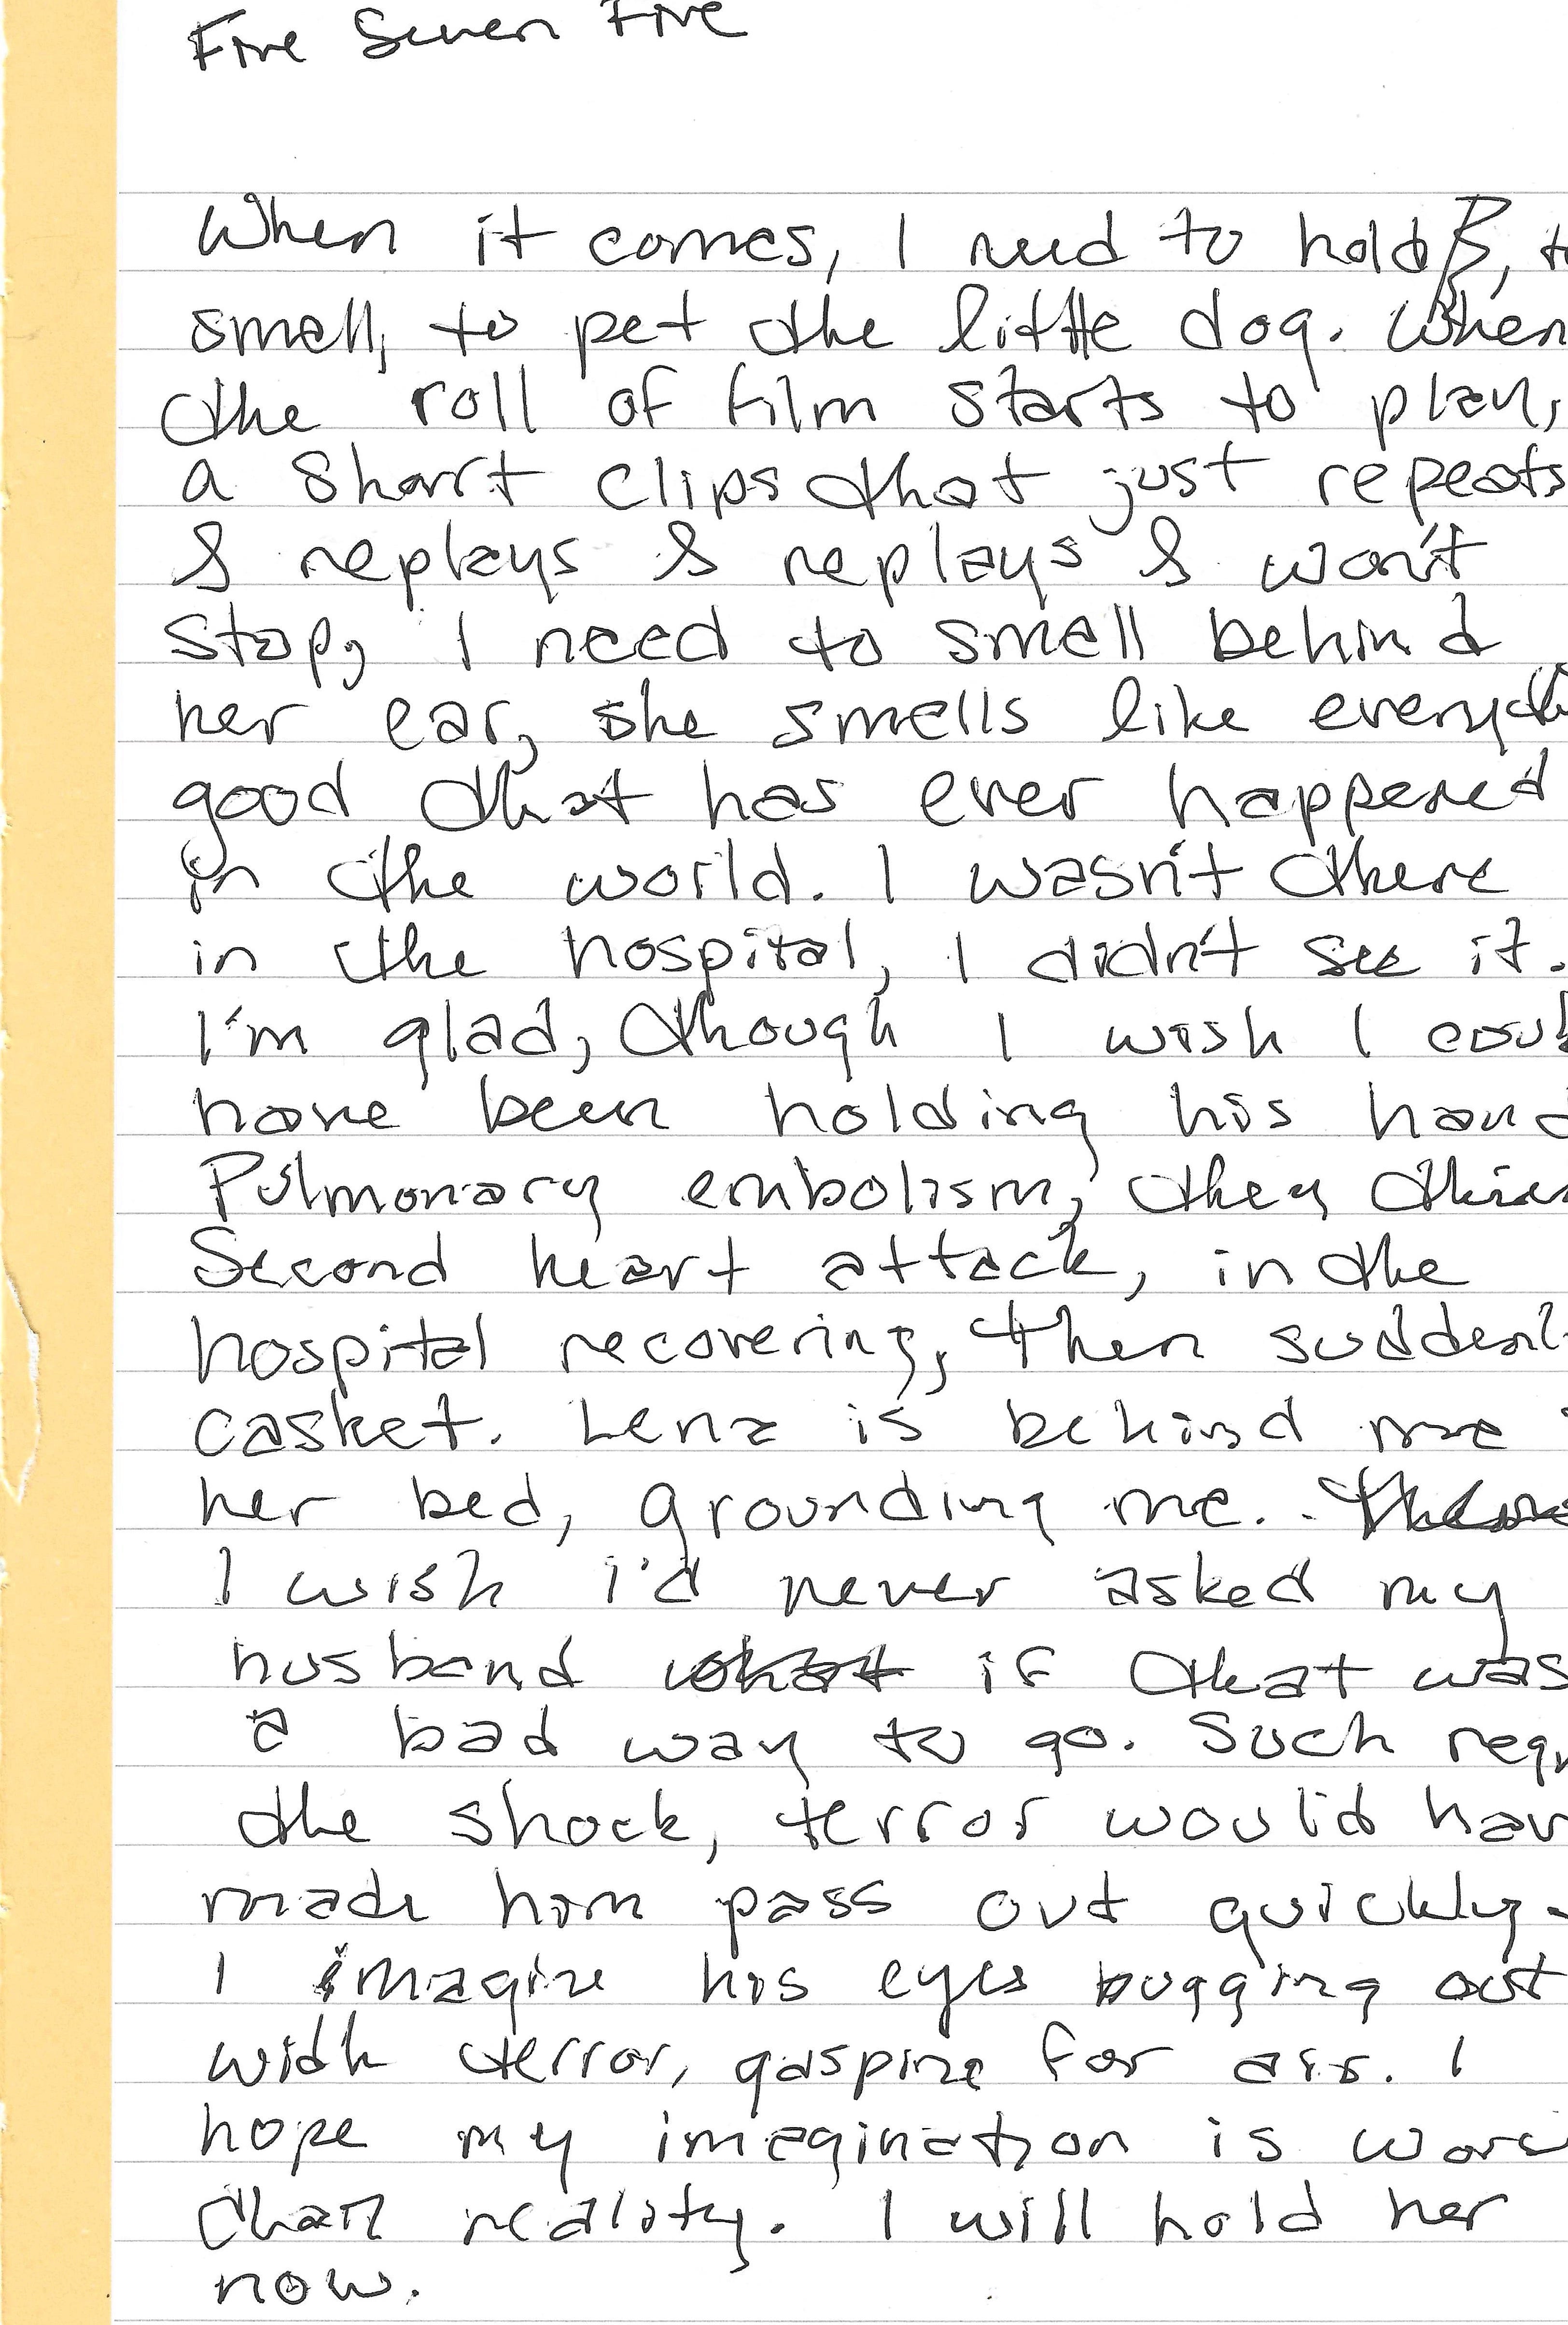 Five Seven Five
When it comes, I need to hold, to
smell, to pet the little dog. When
the roll of film starts to play,
a short clips that just repeats
& replays & replays & won't
stop, I need to smell behind
her ear, she smells like everyth
good that has ever happened
in the world. I wasn't there
in the hospital, I didn't see it.
I'm glad, though I wish I coul
have been holding his hand
Pulmonary embolism, they thin
Second heart attack, in the
hospital recovering, then suddenl
casket. Lena is behind me
her bed, grounding me.
I wish I'd never asked my
husband what if that was
a bad way to go. Such regr
the shock, terror would hav
made him pass out quickly.
I imagine his eyes bugging out
with terror, gasping for air. I
hope my imagination is wors
than reality. I will hold her
now.